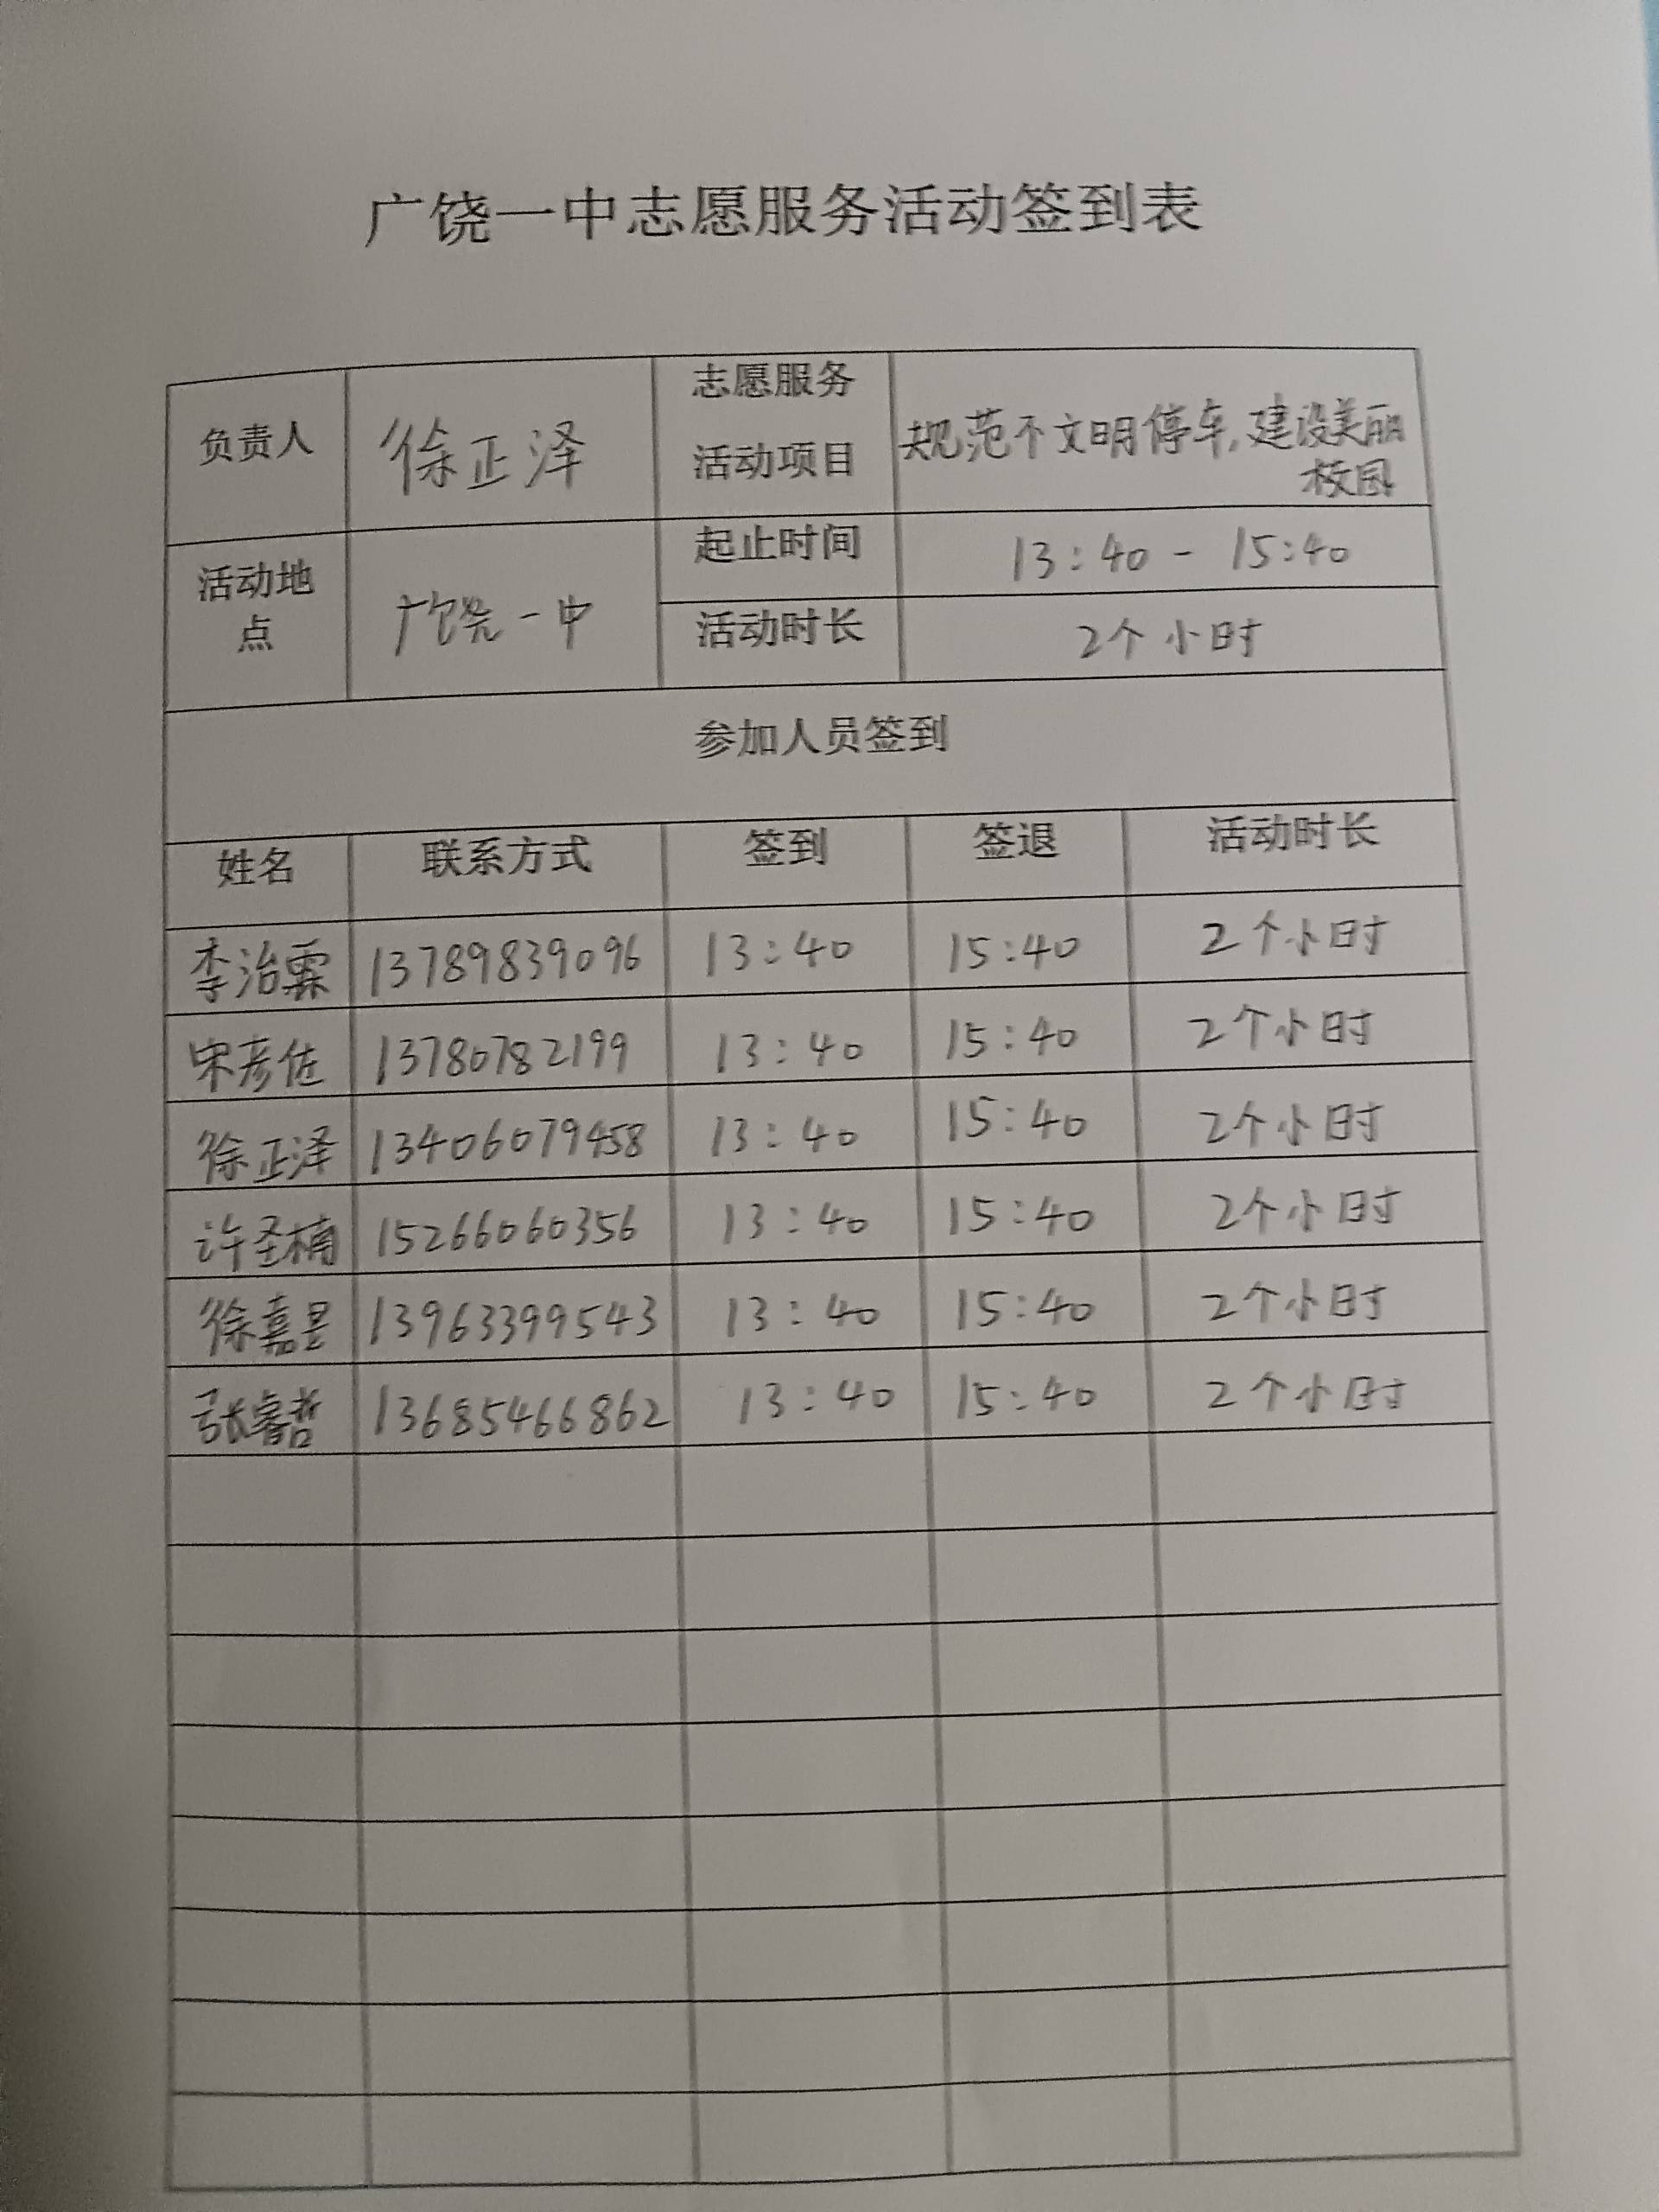 广饶一中志愿服务活动签到表
负责人 徐正泽 志愿服务活动项目 规范不文明停车,建设美丽校园
活动地点 广饶一中 起止时间 13:40 - 15:40
活动时长 2个小时
参加人员签到
姓名 联系方式 签到 签退 活动时长
李治霖 13789839096 13:40 15:40 2个小时
宋彦佐 13780782199 13:40 15:40 2个小时
徐正泽 13406079458 13:40 15:40 2个小时
许圣楠 15266060356 13:40 15:40 2个小时
徐嘉昱 13963399543 13:40 15:40 2个小时
张睿哲 13685466862 13:40 15:40 2个小时